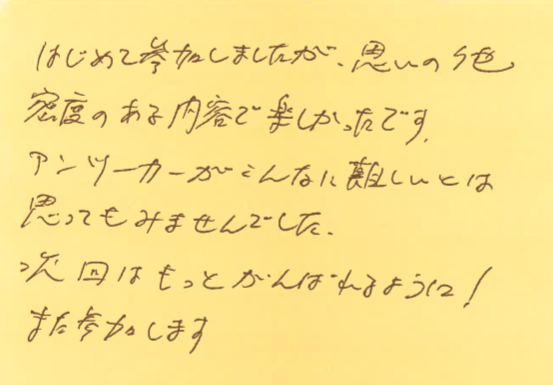 はじめて参加しましたが、思いの他
密度のある内容で楽しかったです。
アンツーカーがこんなに難しいとは
思ってもみませんでした。
次回はもっとがんばれるように!
また参加します